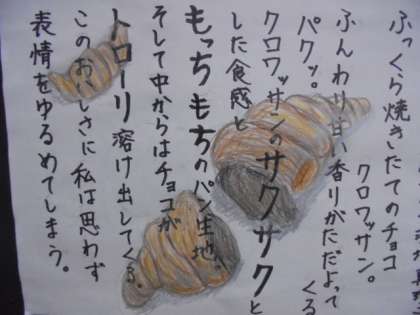 ふっくら焼きたてのチョコ
クロワッサン。
ふんわり甘い香りがただよってくる
パクッ。
クロワッサンのサクサクと
した食感と
もっちもちのパン生地。
そして中からはチョコが
トローリ溶け出してくる。
このおいしさに私は思わず
表情をゆるめてしまう。